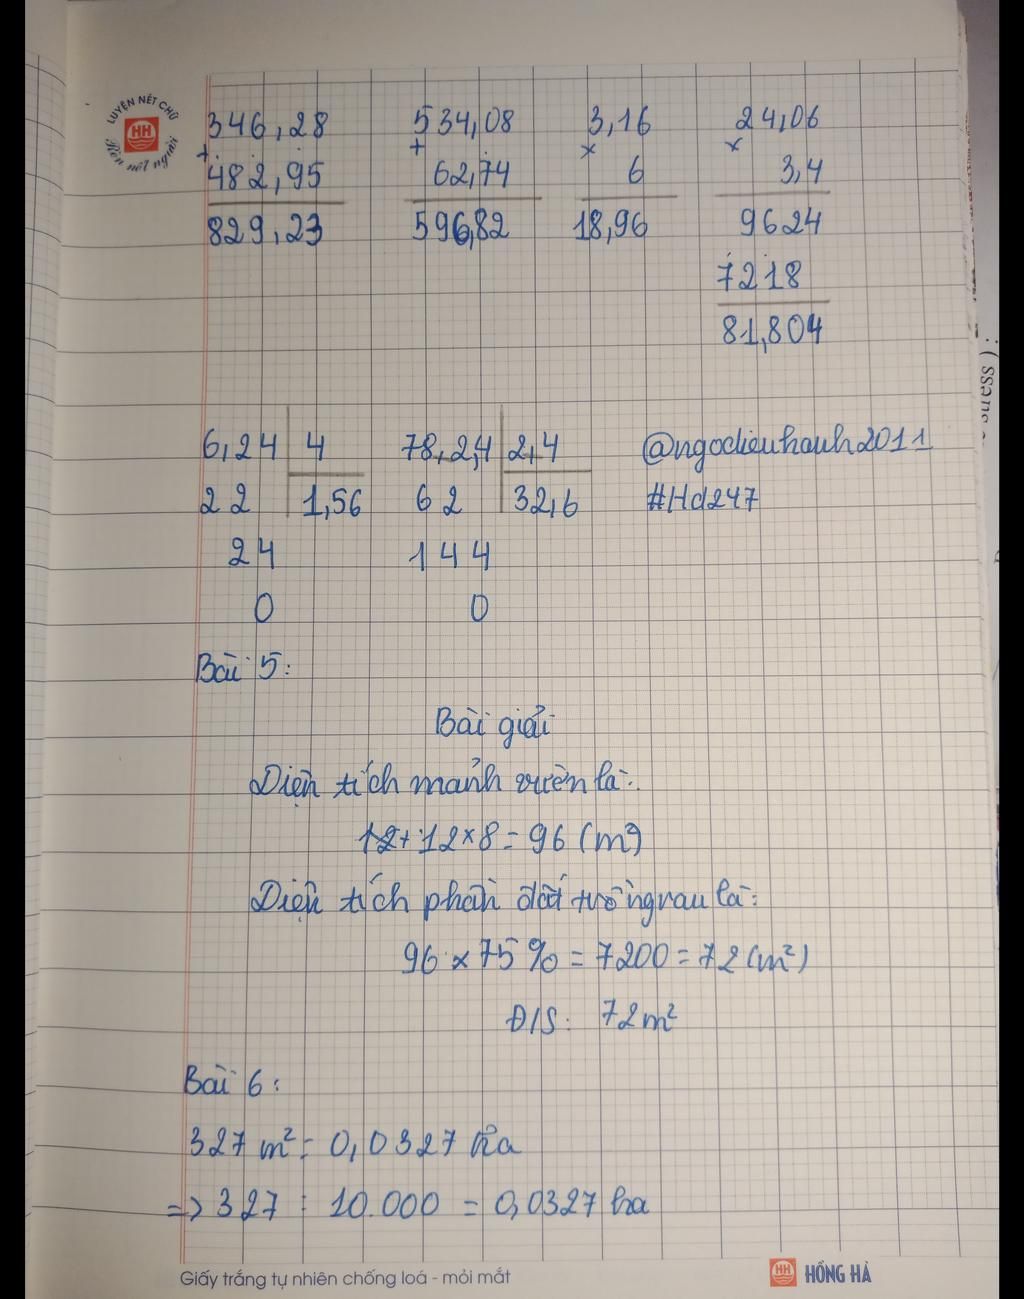 LUYỆN NÉT CHỮ
HH
Rèn nết người
346,28 534,08 3,16 24,06
+ + × ×
482,95 62,74 6 3,4
829,23 596,82 18,96 9624
7218
81,804
6,24 4 78,2,4 2,4 @ngoclieuhanh2011
22 1,56 62 32,6 #Hd247
24 144
0 0
Bài 5:
Bài giải
Diện tích mảnh vườn là:
12+12×8=96 (m²)
Diện tích phần đất trồng rau là:
96 × 75% = 7200 = 72 (m²)
Đ/S: 72m²
Bài 6:
327 m² = 0,0327 ha
=> 327 : 10.000 = 0,0327 ha
Giấy trắng tự nhiên chống loá - mỏi mắt
HH HỒNG HÀ